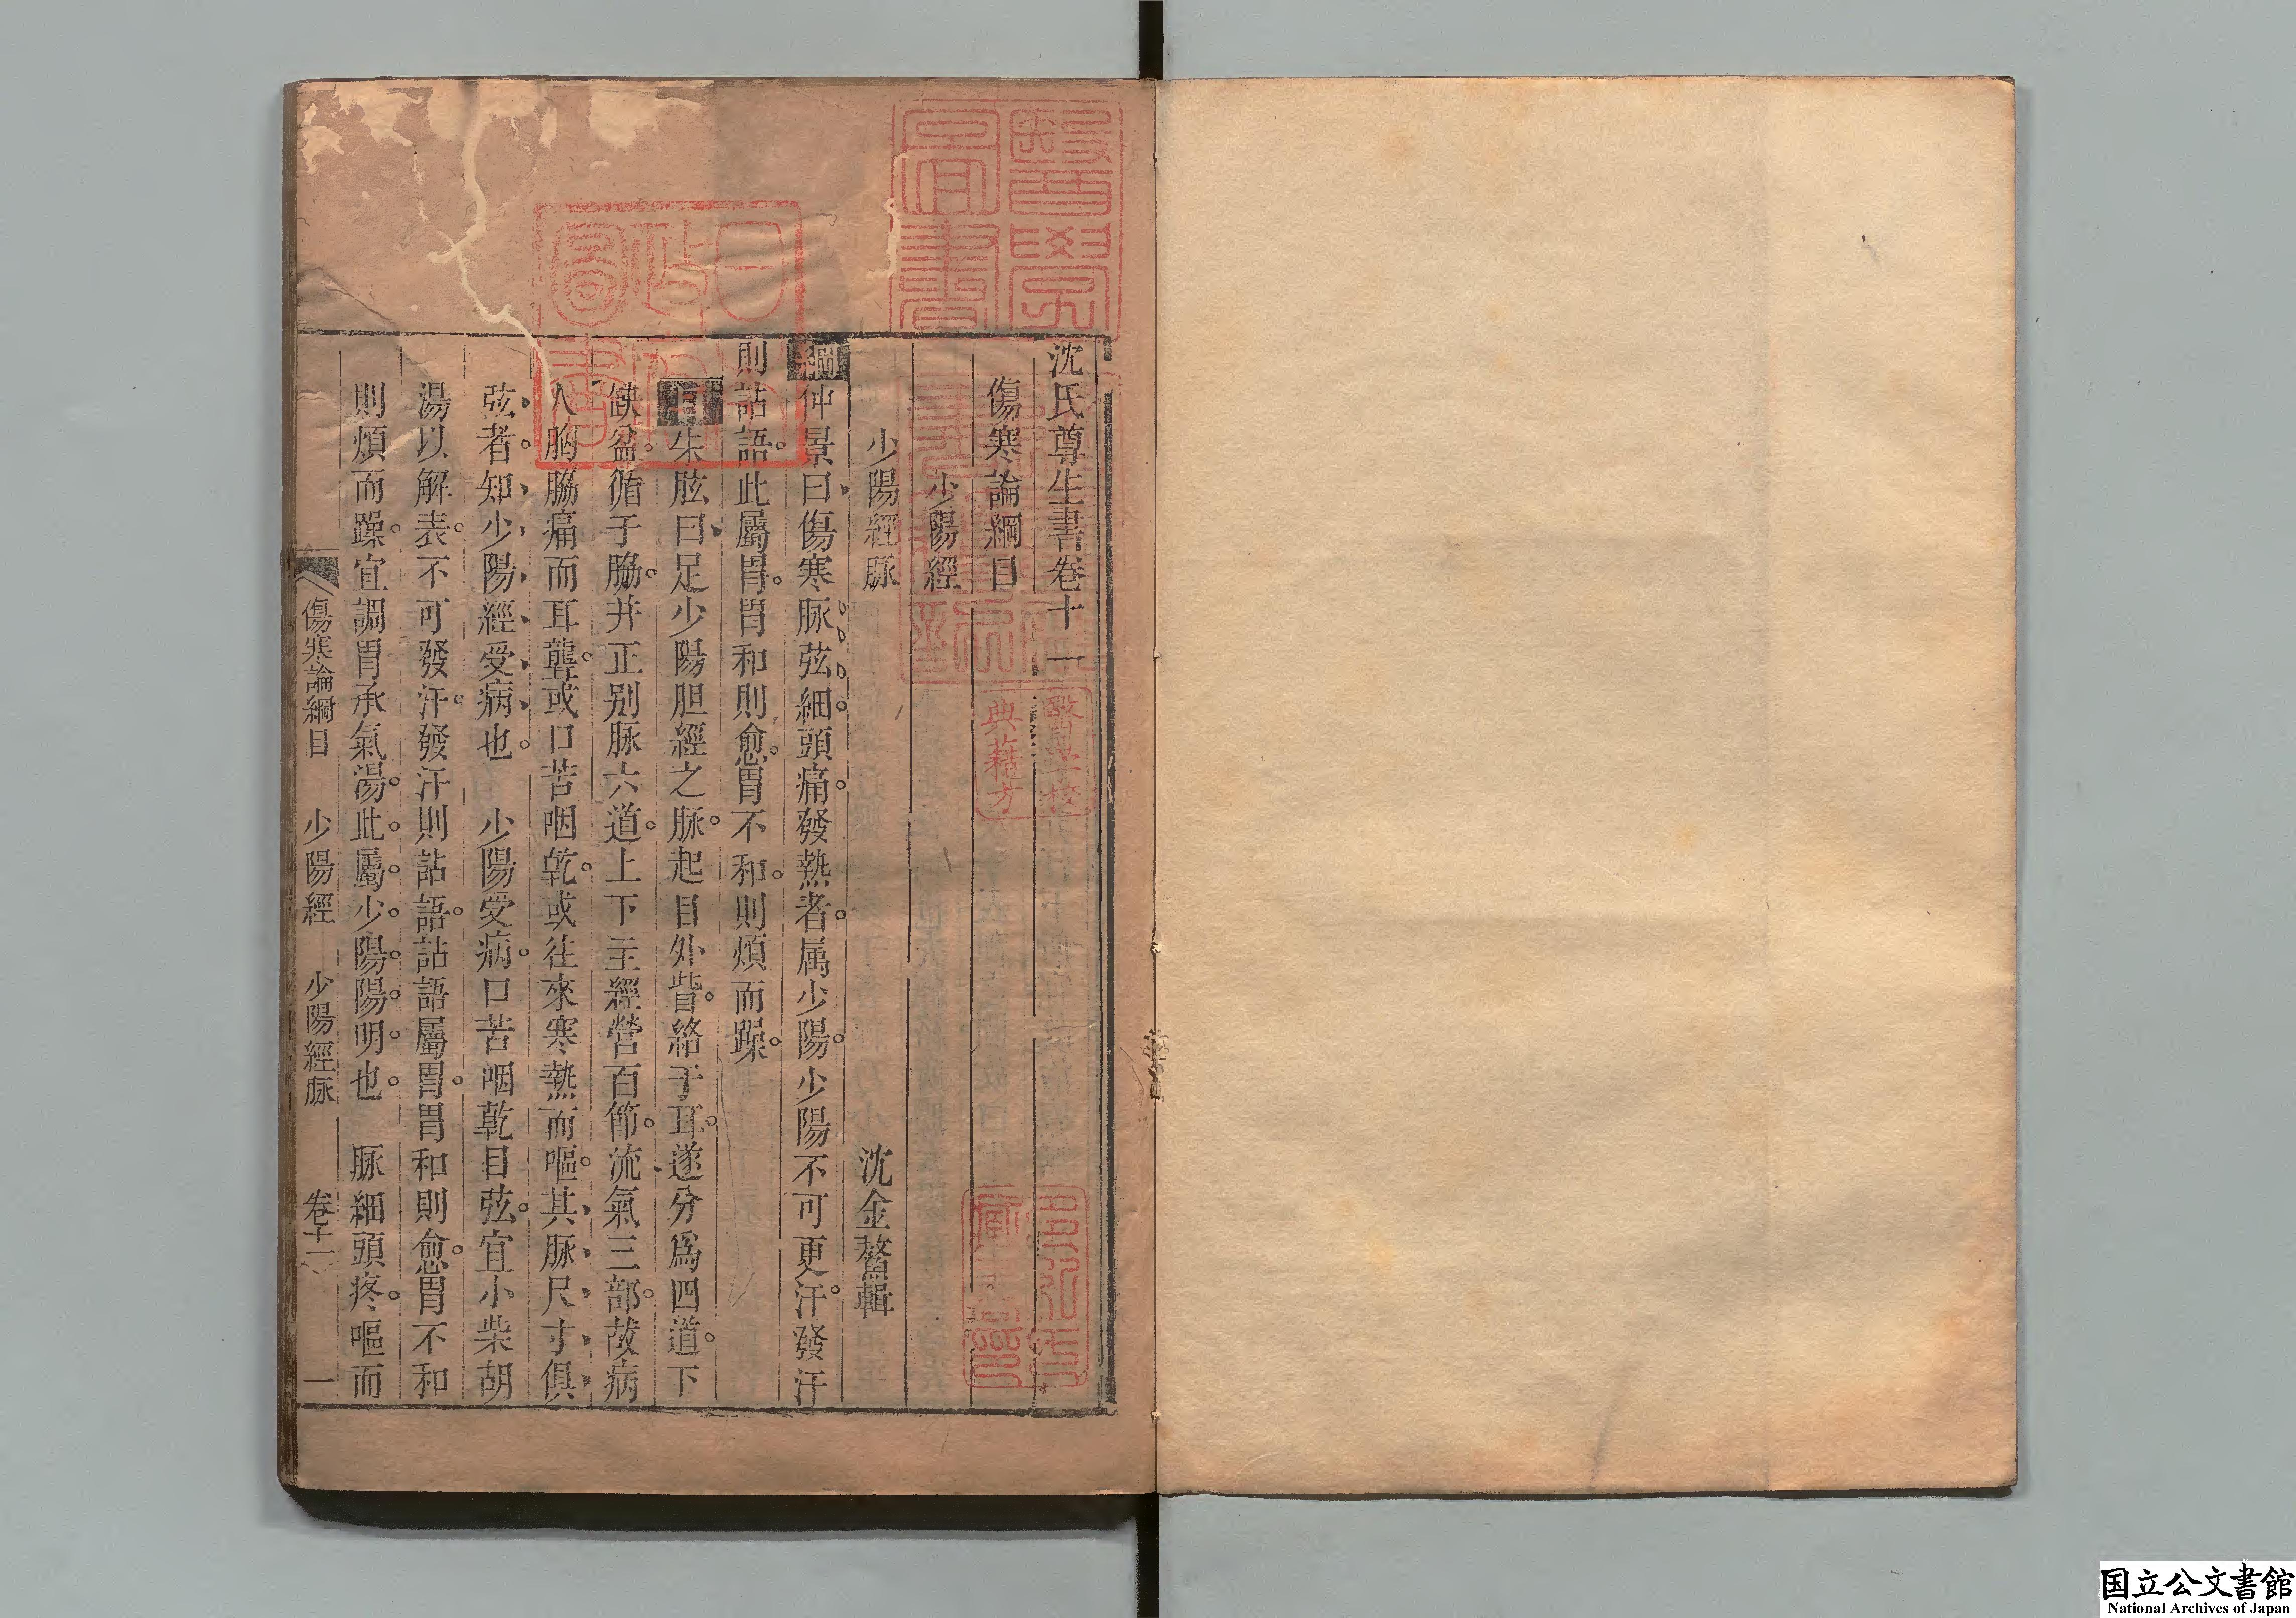 沈氏尊生書卷十一
傷寒論綱目
少陽經
少陽經脉
沈金鰲輯
綱仲景曰傷寒脉弦細。頭痛。發熱者。属少陽。少陽不可更汗。發汗
則詀語。此屬胃。胃和則愈。胃不和。則煩而躁。
目朱肱曰足少陽胆經之脉。起目外眥。絡于耳。遂分爲四道。下
缺盆。循于脇。并正别脉六道。上下主經營百節。流氣三部。故病
人胸脇痛而耳聾。或口苦咽乾。或往來寒熱而嘔。其脉尺寸俱
弦者。知少陽經受病也。少陽受病。口苦咽乾目弦。宜小柴胡
湯以解表。不可發汗。發汗則詀語。詀語屬胃。胃和則愈。胃不和
則煩而躁。宜調胃承氣湯。此屬少陽陽明也。脉細頭疼。嘔而
傷寒論綱目 少陽經 少陽經脉 卷十一 一
醫學圖書
日本政府圖書
醫學校
典籍方
多紀氏
藏書印
国立公文書館
National Archives of Japan